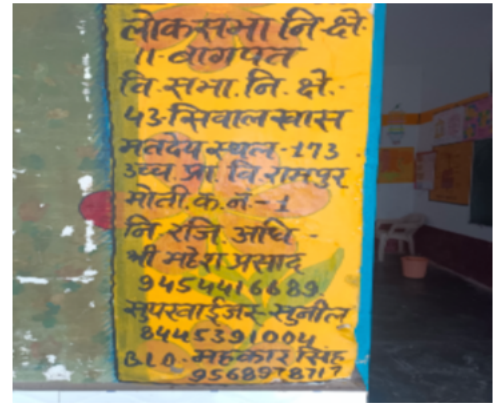 लोकसभा नि.क्षे.
11-बागपत
वि.सभा.नि.क्षे.-
43-सिवालखास
मतदेय स्थल-173
उच्च प्रा. वि. रामपुर
मोती.क.नं-1
नि रजि अधि-
श्री महेश प्रसाद
9454416689
सुपरवाईजर-सुनील
8445391004
B.L.O.-महकार सिंह
9568978717